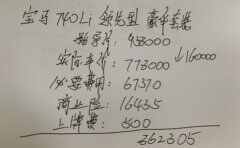 宝马740Li 领先型 豪华套装
指导价:938000
实际车价:778000 ↓160000
必要费用:67370
商业险:16435
上牌费:500
862305